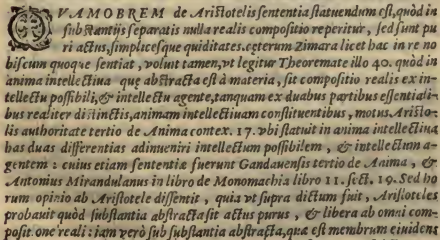 QVAMOBREM de Aristotelis sententia statuendum est, quòd in
substantijs separatis nulla realis compositio reperitur, sed sunt pu
ri actus, simplicesque quiditates. cęterum Zimara licet hac in re no
biscum quoque sentiat, voluit tamen, vt legitur Theoremate illo 40. quòd in
anima intellectiua quę abstracta est à materia, sit compositio realis ex in-
tellectu possibili, & intellectu agente, tanquam ex duabus partibus essentiali-
bus realiter distinctis, animam intellectiuam constituentibus, motus Aristo-
lis authoritate tertio de Anima contex. 17. vbi statuit in anima intellectiua
has duas differentias adinueniri intellectum possibilem, & intellectum a-
gentem: cuius etiam sententiæ fuerunt Gandauensis tertio de Anima, &
Antonius Mirandulanus in libro de Monomachia libro 11. sect. 19. Sed ho
rum opinio ab Aristotele dissentit, quia vt supra dictum fuit, Aristoteles
probauit quòd substantia abstracta sit actus purus, & libera ab omni com-
posit one reali: iam verò sub substantia abstracta, quæ est membrum eiusdem